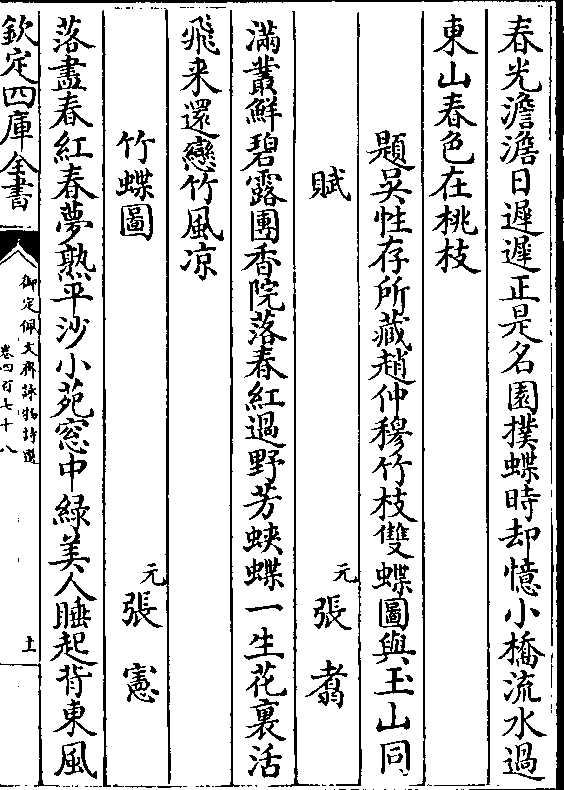 春光澹澹日遲遲正是名園撲蝶時却憶小橋流水過
東山春色在桃枝
題吳性存所藏趙仲穆竹枝雙蝶圖與玉山同
賦
元張翥
滿叢鮮碧露團香院落春紅過野芳蛺蝶一生花裏活
飛来還戀竹風凉
竹蝶圖
元張憲
落盡春紅春夢熟平沙小苑窓中緑美人睡起背東風
欽定四庫全書
御定佩文齋詠物詩選
卷四百七十八